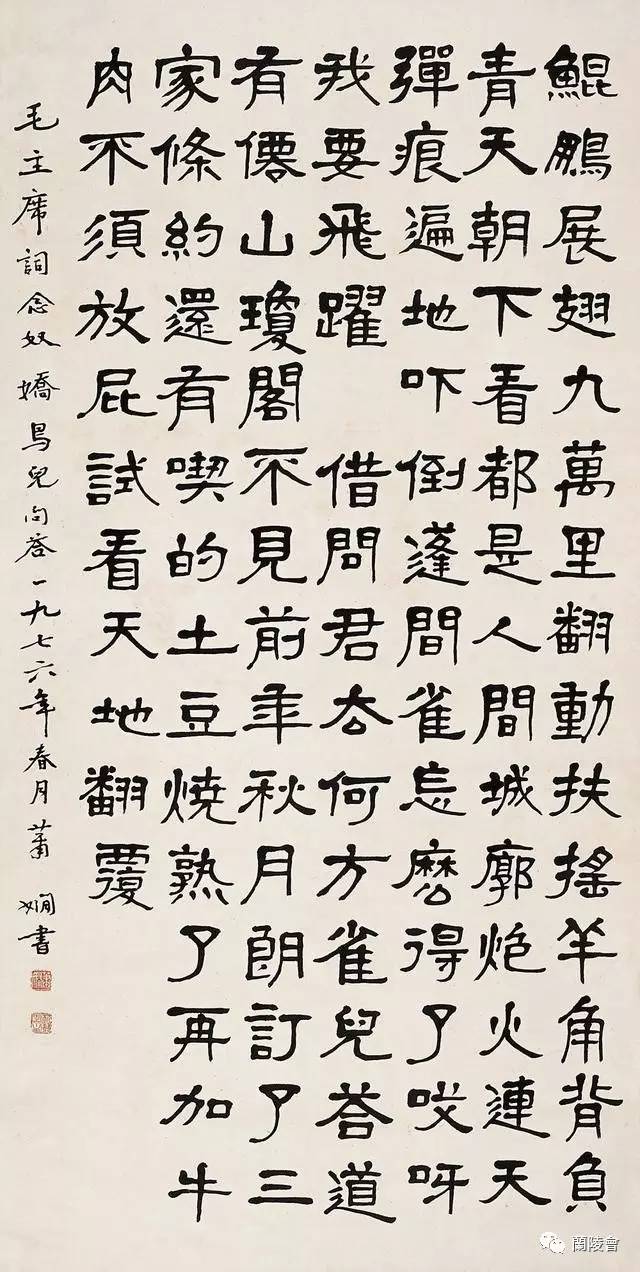 鯤鵬展翅九萬里翻動扶搖羊角背負
青天朝下看都是人間城廓炮火連天
彈痕遍地吓倒蓬間雀怎麼得了哎呀
我要飛躍 借問君去何方雀兒答道
有僊山瓊閣不見前年秋月朗訂了三
家條約還有喫的土豆燒熟了再加牛
肉不須放屁試看天地翻覆
毛主席詞念奴嬌鳥兒问荅一九七六年春月蕭嫻書
蘭陵會